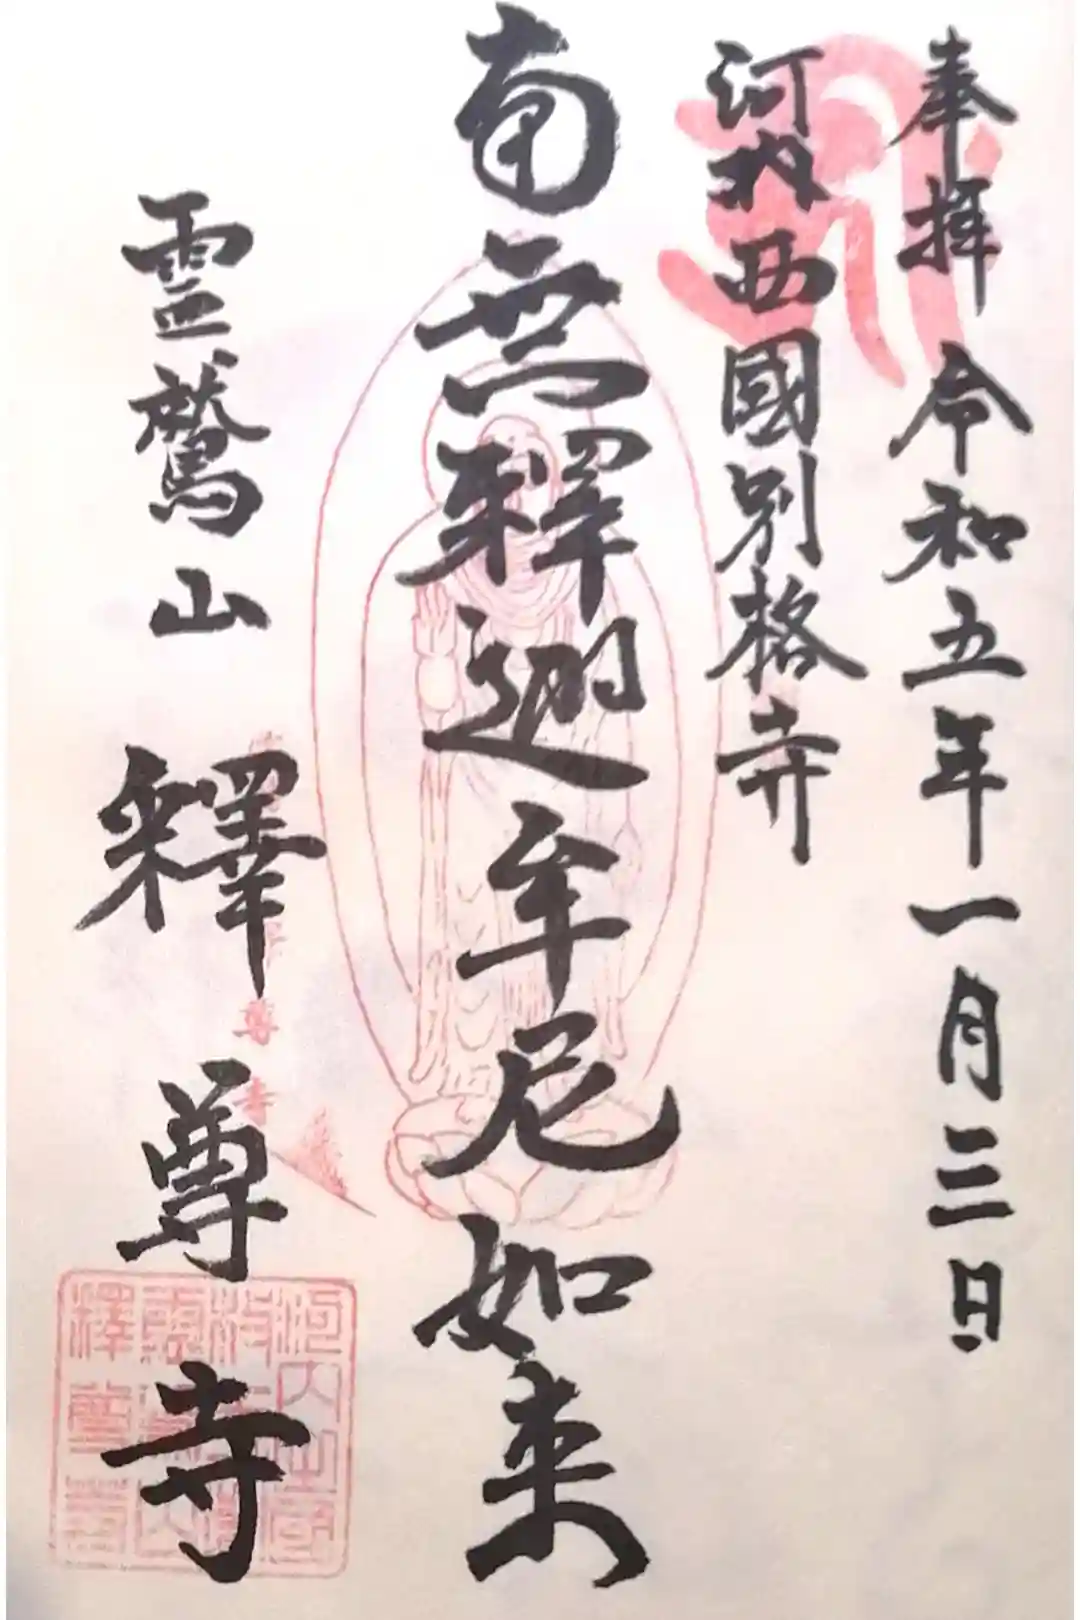 奉拜 令和五年一月三日
河内西國別格寺
南無釋迦牟尼如来
霊鷲山 釋尊寺